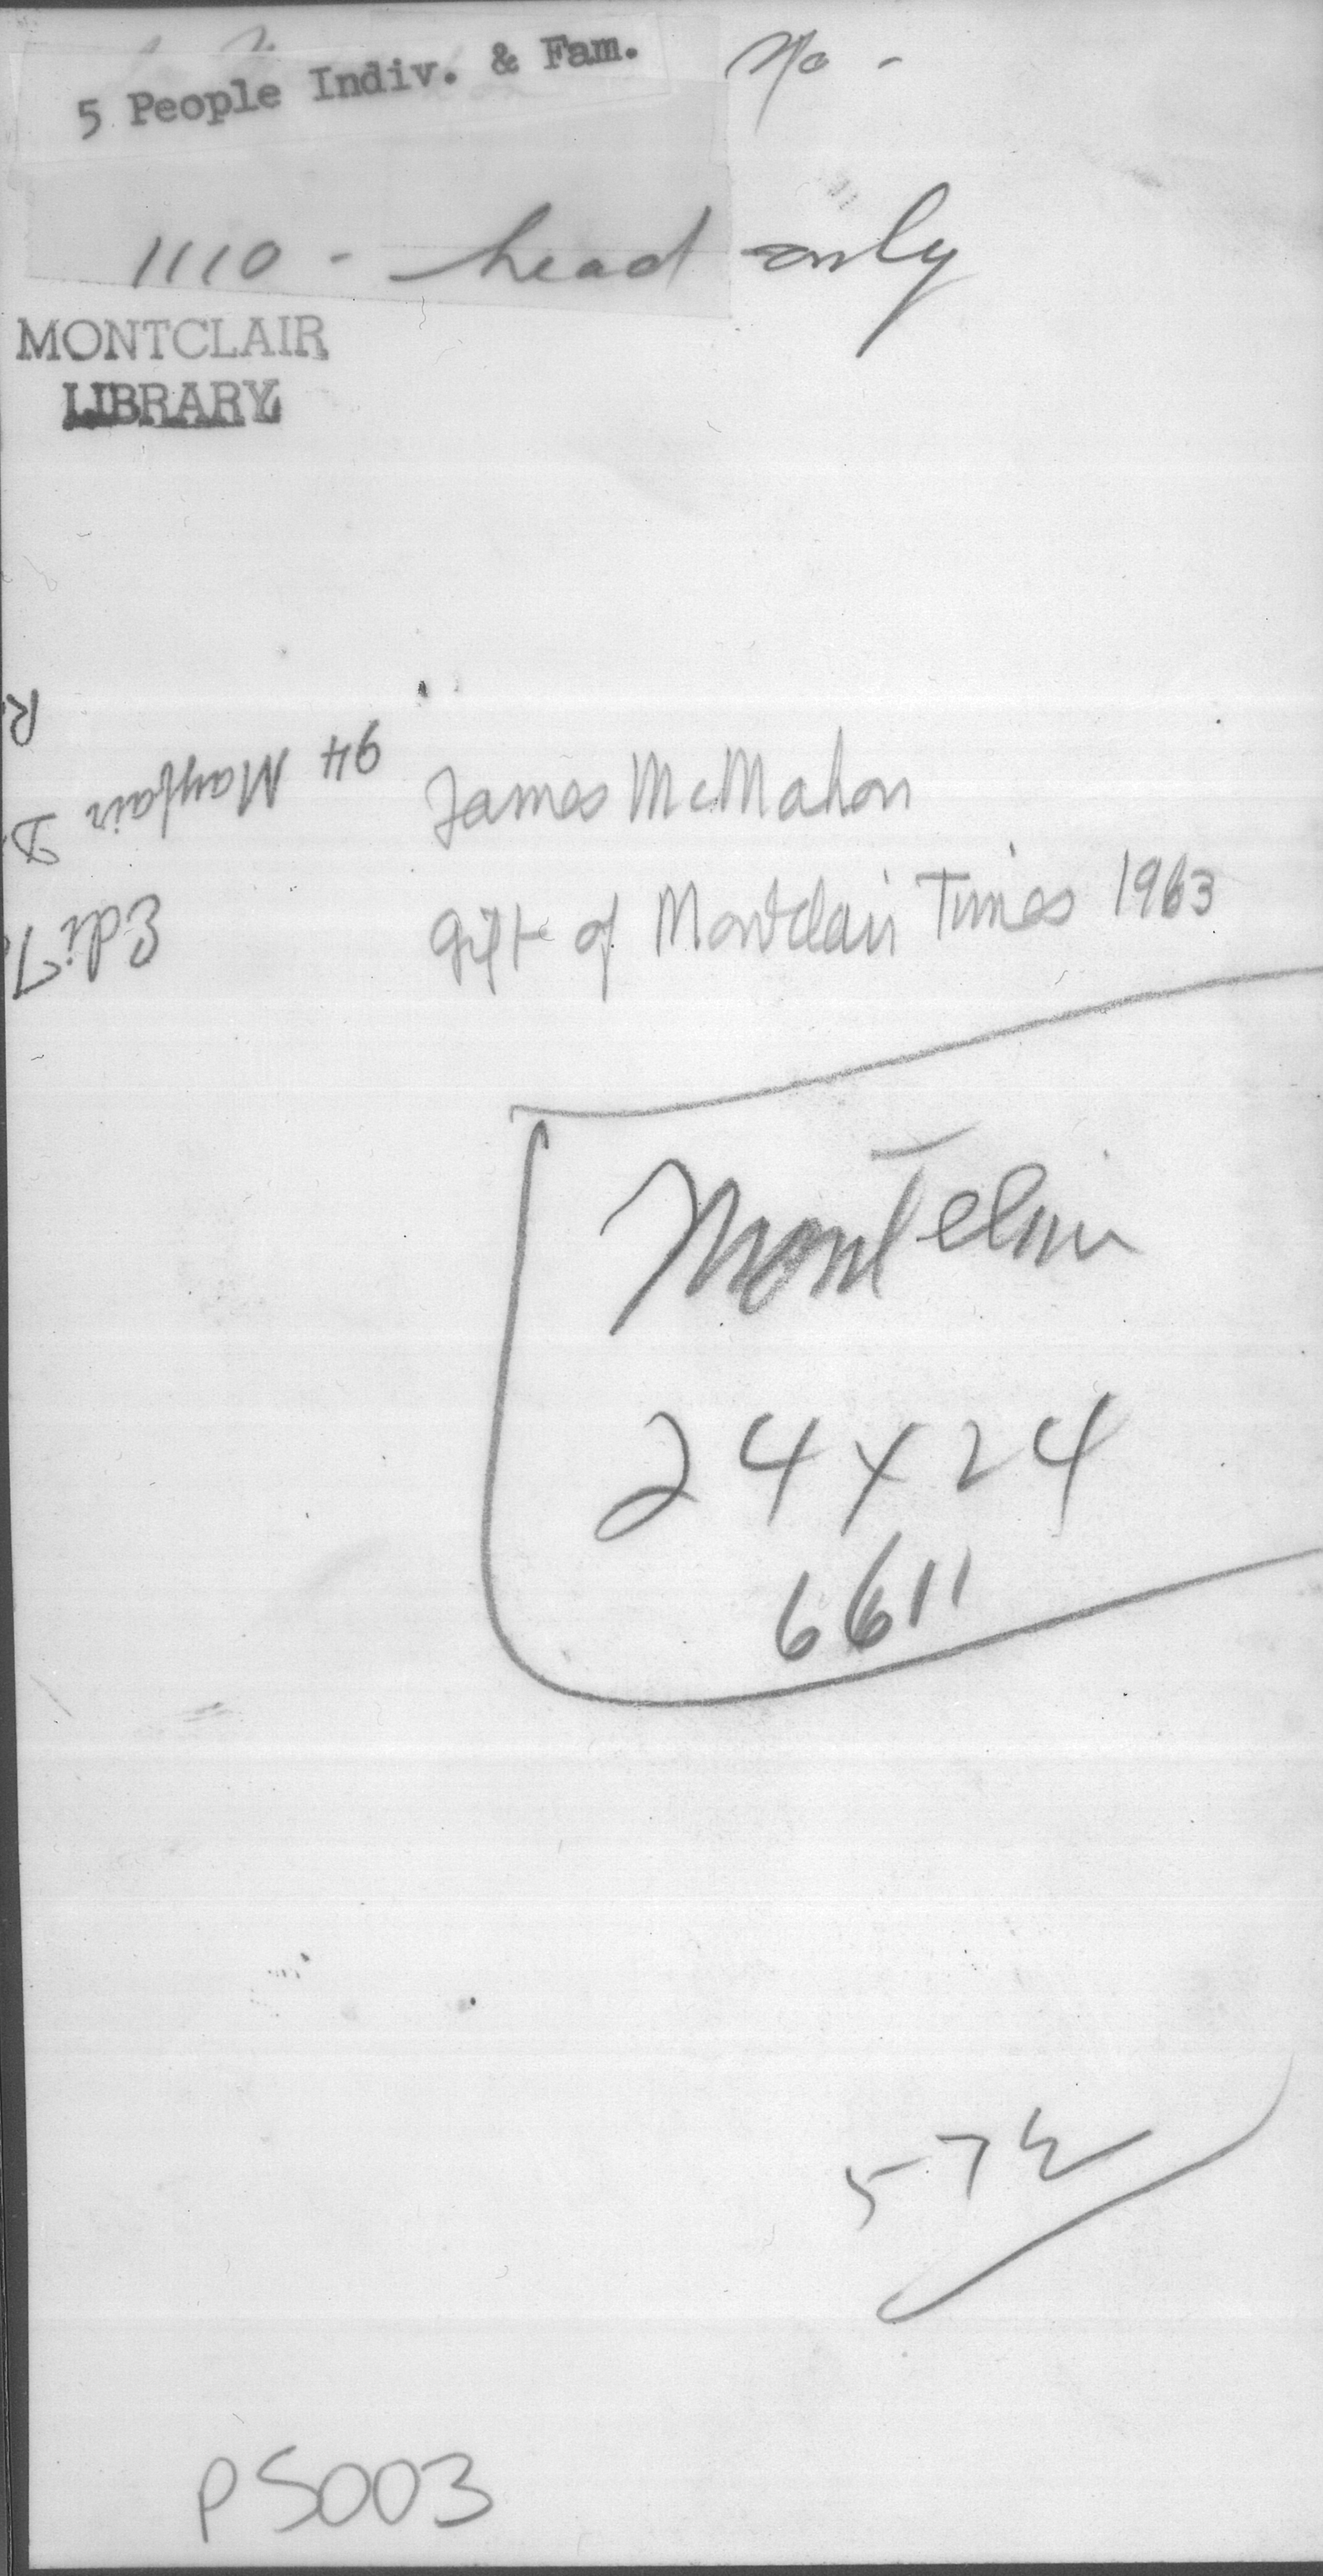 5 People Indiv. & Fam.
No -
1110 - head only
MONTCLAIR
LIBRARY
94 Mayfair D
James McMahon
Gift of Montclair Times 1963
Montclair
24 x 24
6611
P5003